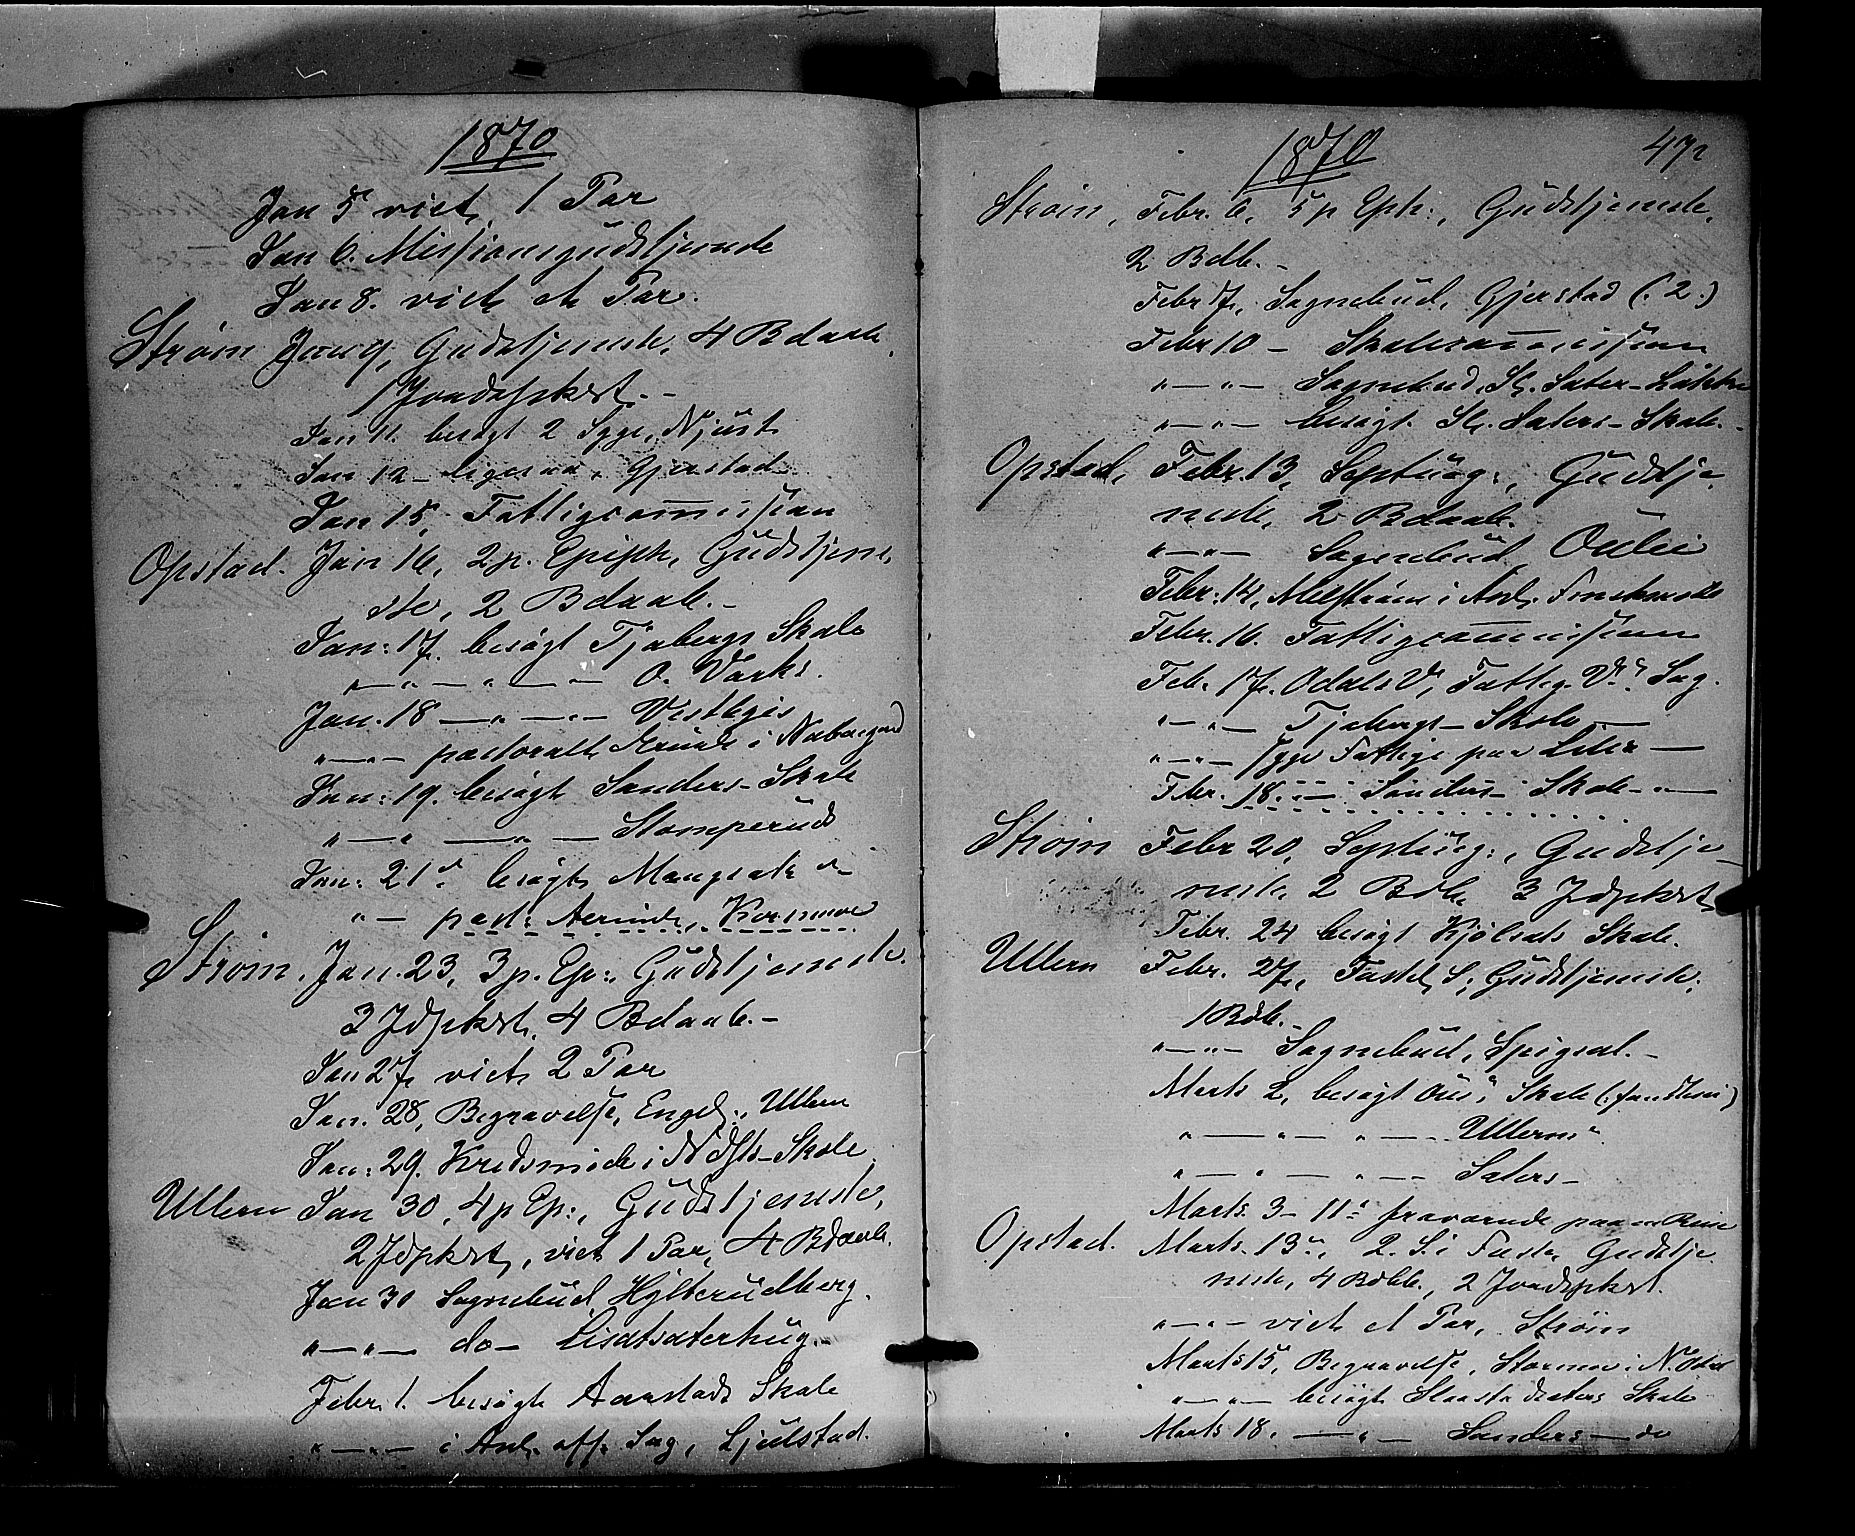 1870
Jan 5 viet 1 Par
Jan 6. Missionsgudstjeneste
Jan 8. viet et Par.
Strøm Jan 9, Gudstjeneste, 4 Bdaab
1 Jordspkst. -
Jan 11. besøgt 2 Syge, Njust
Jan 12 - ligesaa, Gjerstad
Jan 15, Fattigcommission
Opstad. Jan 16, 2 p. Epiph, Gudstjene
ste, 2 Bdaab. -
Jan: 17. besøgt Tjabergs Skole
" — " — " — O. Værks.
Jan. 18 — " — " — Vestbyes
" — " — pastoralt Ærinde i
Jan: 19. besøgt Sanders - Skole
" — " — " — Stomperud
Jan: 21 besøgt
" — past: Aerinde, Kornmoe
Strøm. Jan. 23, 3 p. Ep:, Gudstjeneste.
3 Jdspkst, 4 Bdaab. -
Jan 27, viet 2 Par
Jan. 28, Begravelse, Enged:, Ullern
Jan: 29. Kredsmøde i Skole
Ullern Jan 30, 4 p Ep:, Gudstjeneste,
2 Jdpkst, viet 1 Par, 4 Bdaab.
Jan 30 Sognebud, Hylterudberg.
" — " — do — Lisætsæterhug. -
Febr. 1. besøgt Aarstads Skole
" — " — i Anl. off. Sag, Ljulstad.
1870 472
Strøm, Febr. 6, 5 p Eph:, Gudstjeneste,
2 Bdb. -
Febr 7, Sognebud, Gjerstad (: 2 :)
Febr 10 - Skolecommission
" — " — Sognebud, St. Sæter -
" — " — besøgt St. Sæters - Skole. -
Opstad, Febr. 13, Septuag:, Gudstje
neste, 2 Bdaab.
" — " — Sognebud, Oulie
Febr: 14, i Anl.
Febr. 16. Fattigcommission
Feb. 17. Odals V, Fattig V. Sag.
" — " — Tjabergs - Skole —
" — " — Syge Fattige paa Lier —
Febr. 18. — Sanders - Skole - " —
Strøm Febr 20, Septuag:, Gudstje
neste, 2 Bdb, 3 Jdpkst
Febr. 24 besøgt Kjølsæts Skole.
Ullern Febr. 27, Fastel S, Gudstjeneste,
1 Bdb. -
" — " — Sognebud, Spigset. -
Marts 2, besøgt Ous, Skole
" — " — " — Ullerns
" — " — " — Sæters -
Marts 3 - 11 fraværende paa en Reise
Opstad. Marts. 13, 2. S. i Faste, Gudstje
neste, 4 Bdbb., 2 Jordspkst.
" — " — viet et Par, Strøm
Marts 15, Begravelse, Stormo i N. Odal
" — " — besøgt Skole
Marts 18. — " — Sanders — do